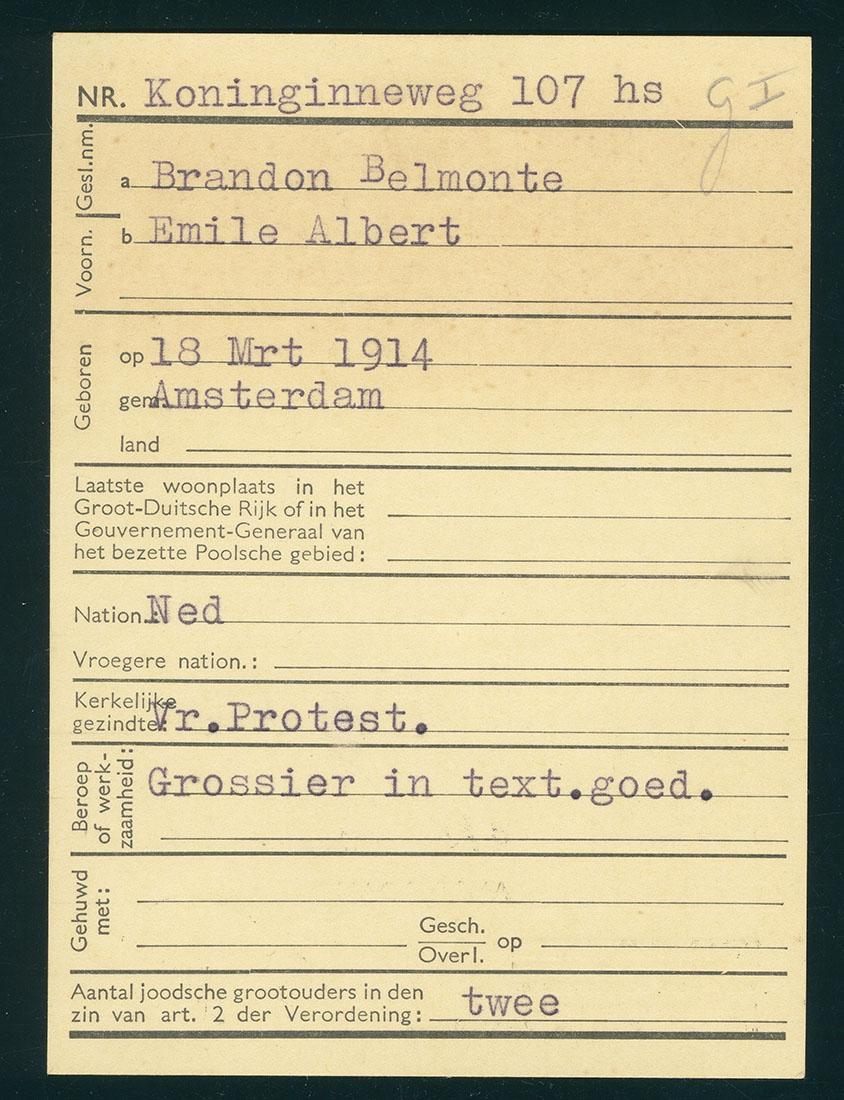 NR. Koninginneweg 107 hs GI
Gesl.nm. a Brandon Belmonte
Voorn. b Emile Albert
Geboren op 18 Mrt 1914
gem. Amsterdam
land
Laatste woonplaats in het
Groot-Duitsche Rijk of in het
Gouvernement-Generaal van
het bezette Poolsche gebied:
Nation.: Ned
Vroegere nation.:
Kerkelijke
gezindte: Vr.Protest.
Beroep of werk-zaamheid: Grossier in text.goed.
Gehuwd met:
Gesch.
Overl. op
Aantal joodsche grootouders in den
zin van art. 2 der Verordening: twee